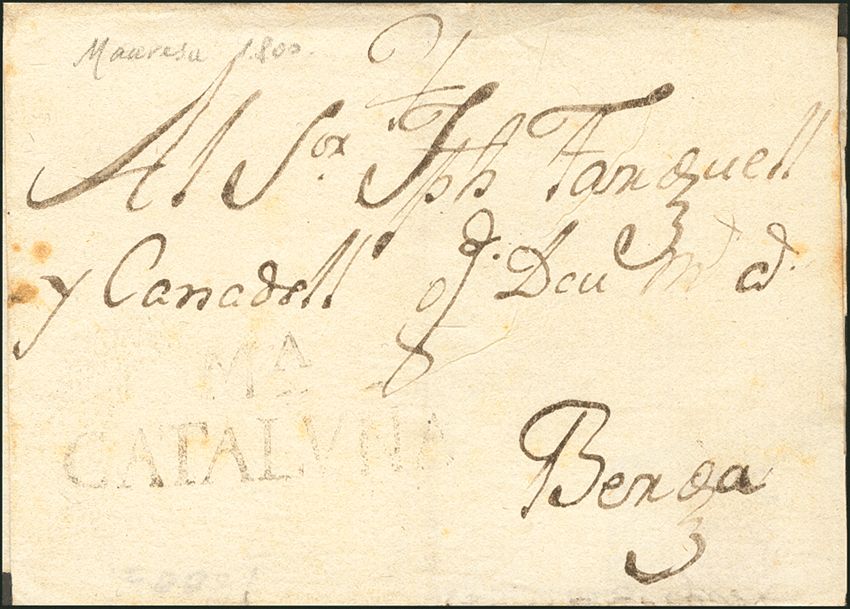 Manresa 1800.
†
Al Sor. Jph Farguell
y Canadell q.e Deu m.s a.s
MA
CATALUÑA
Berga